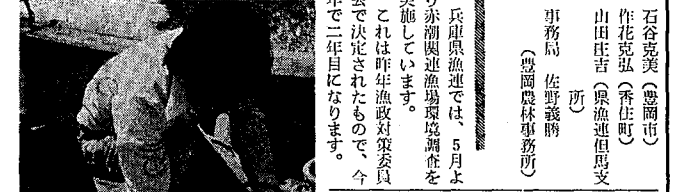 石谷克美（豊岡市）
作花克弘（香住町）
山田庄吉（県漁連但馬支
所）
事務局　佐野義勝
（豊岡農林事務所）
兵庫県漁連では、5月よ
り赤潮関連漁場環境調査を
実施しています。
これは昨年漁政対策委員
会で決定されたもので、今
年で二年目になります。